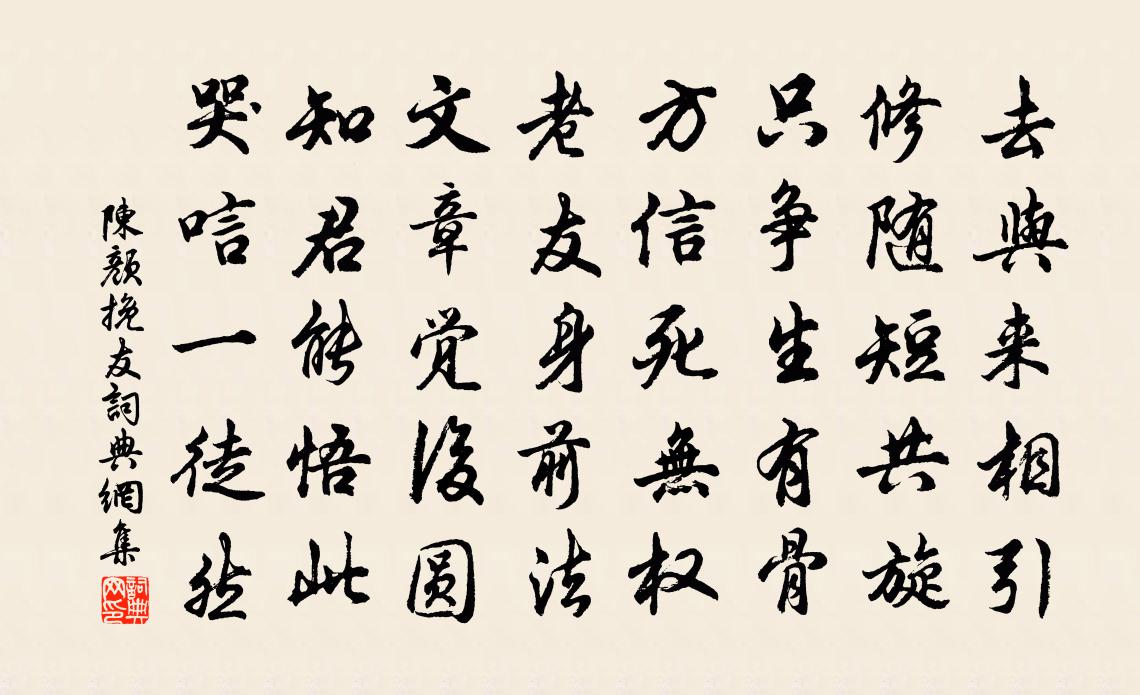 去與来相引
修随短共旋
只争生有骨
方信死無权
老友身前法
文章觉後圆
知君能悟此
哭唁一徒然
陳顏挽友詞典網集
詞典网印